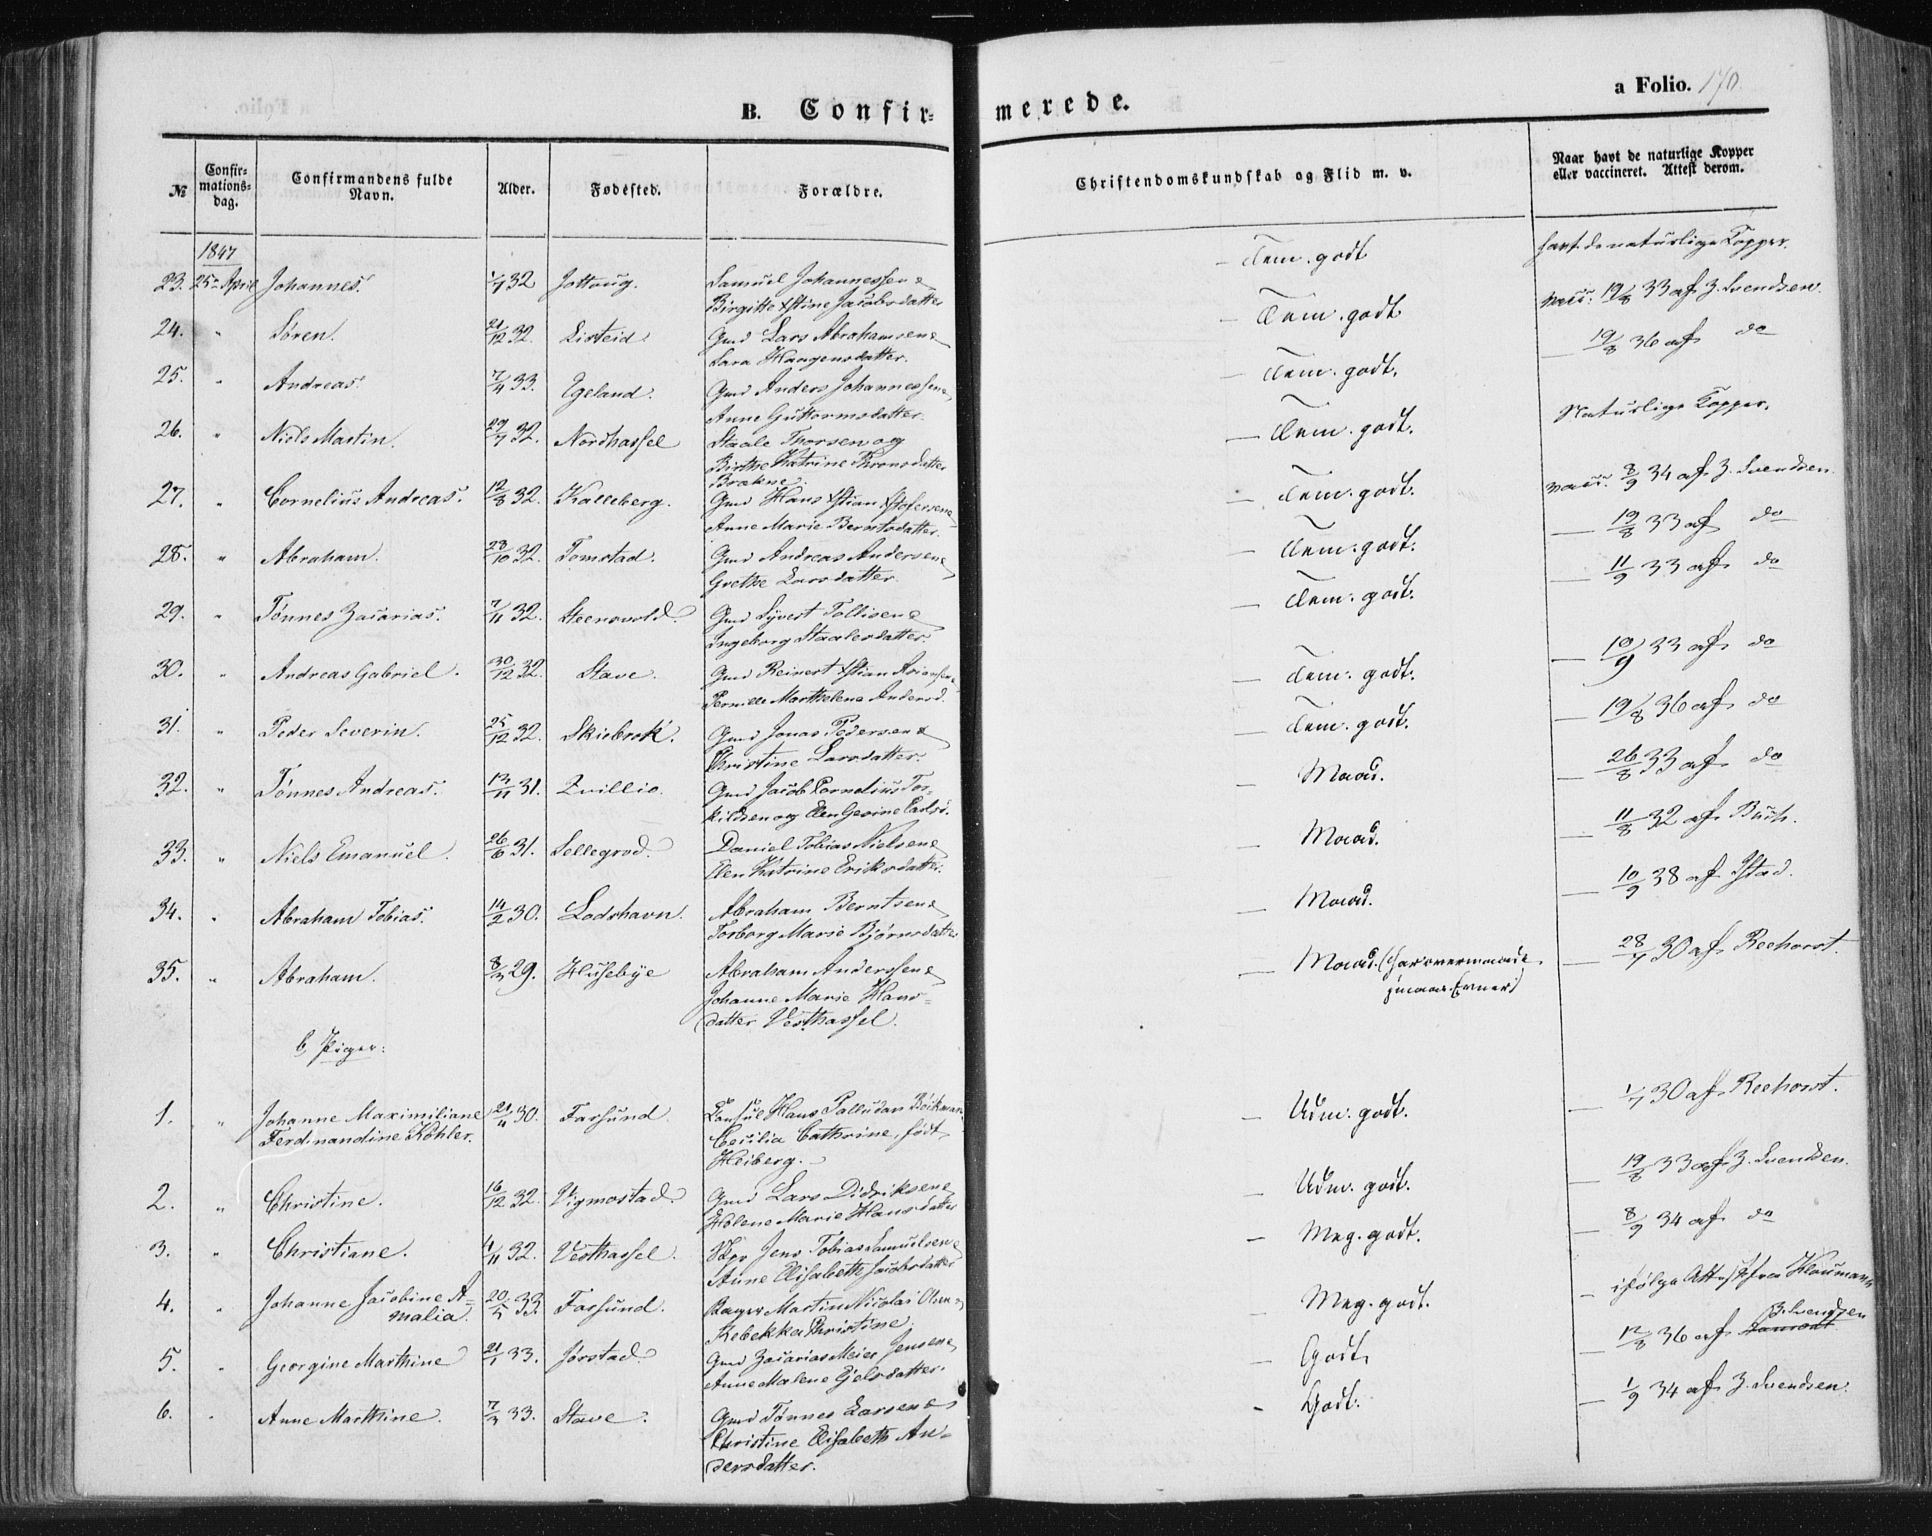 a Folio. 170.
B. Confir-
merede.
№
Confir-
mations-
dag.
Confirmandens fulde
Navn.
Alder.
Fødested.
Forældre.
Christendomskundskab og Flid m. v.
Naar havt de naturlige Kopper
eller vaccineret. Attest derom.
1847
23. 25de April Johannes. 1/7 32 Jottoug. Samuel Johannessen &
Birgitte Xstine Jacobsdatter
— Tem. godt havt de naturlige Kopper.
24. " Søren. 21/12 32. Listeid. Gmd Lars Abrahamsen &
Sara Haagensdatter.
— Tem. godt vacc. 19/8 33 af Z. Svendsen.
25. " Andreas. 7/4 33. Egeland. Gmd Anders Johannessen &
Anne Guttormsdatter.
— Tem. godt. — 19/8 36 af do
26. " Niels Martin. 29/7 32. Nordhassel Staale Thorsen og
Birthe Katrine Bronsdatter
Brækne.
— Tem. godt. Naturlige Kopper.
27. " Cornelius Andreas. 12/8 32. Kalleberg. Gmd Hans Xstian Xstofersen &
Anne Marie Berntsdatter.
— Tem. godt. vacc. 8/9 34 af Z. Svendsen.
28. " Abraham. 28/10 32. Tomstad. Gmd Andreas Andersen &
Grethe Larsdatter.
— Tem. godt. — 19/8 33 af do
29. " Tønnes Zacarias. 7/11 32. Steensvold. Gmd Syvert Tollisen &
Ingeborg Staalesdatter.
— Tem. godt. — 11/9 33 af do
30. " Andreas Gabriel. 30/12 32. Stave. Gmd Reinert Xstian Ariansen &
Pernille Marthelena Andersd.
— Tem. godt. — 10/9 33 af do
31. " Peder Severin. 25/12 32. Skiebrok. Gmd Jonas Pedersen &
Christine Larsdatter.
— Tem. godt. — 19/8 36 af do
32. " Tønnes Andreas. 13/11 31. Qvillio. Gmd Jacob Cornelius Tor-
kildsen og Elen Gesine Carlsd.
— Maad. — 26/8 33 af do
33. " Niels Emanuel. 26/6 31. Sellegrod. Daniel Tobias Nielsen &
Elen Katrine Eriksdatter.
— Maad. — 11/8 32 af Buch.
34. " Abraham Tobias. 14/2 30. Lodshavn. Abraham Berntsen &
Torborg Marie Bjørnsdatter
— Maad. — 10/9 38 af Ystad.
35. " Abraham. 8/3 29. Husebye Abraham Anderssen &
Johanne Marie Hans-
datter Vesthassel.
— Maad. (har overmaade
smaae Evner) — 28/7 30 af Reehorst.
b, Piger:
1. " Johanne Maximiliane
Ferdinandine Köhler. 21/4 30. Farsund. Consul Hans Palludan Böckman
Cecilia Cathrine, født
Heiberg.
— Udm. godt. — 1/7 30 af Reehorst.
2. " Christine. 16/12 32. Vigmostad Gmd Lars Didriksen &
Helene Marie Hansdatter
— Udm. godt. — 19/8 33 af Z. Svendsen.
3. " Christiane. 4/11 32. Vesthassel. Skpr Jens Tobias Samuelsen &
Anne Elisabeth Jacobsdatter
— Meg. godt. — 8/9 34 af do
4. " Johanne Jacobine A-
malia. 20/5 33. Farsund. Bager Martin Nicolai Olsen &
Rebekka Christine.
— Meg. godt. — ifølge Attest fra Houmann
5. " Georgine Marthine 21/1 33. Jørstad. Gmd Zacarias Meier Jensen &
Anne Malene Gjelsdatter.
— Godt. — 12/8 36 af Z. Svendsen
6. " Anne Marthine. 7/3 33. Stave. Gmd Tønnes Larsen &
Christine Elisabeth An-
dersdatter.
— Godt. — 1/9 34 af Z. Svendsen.